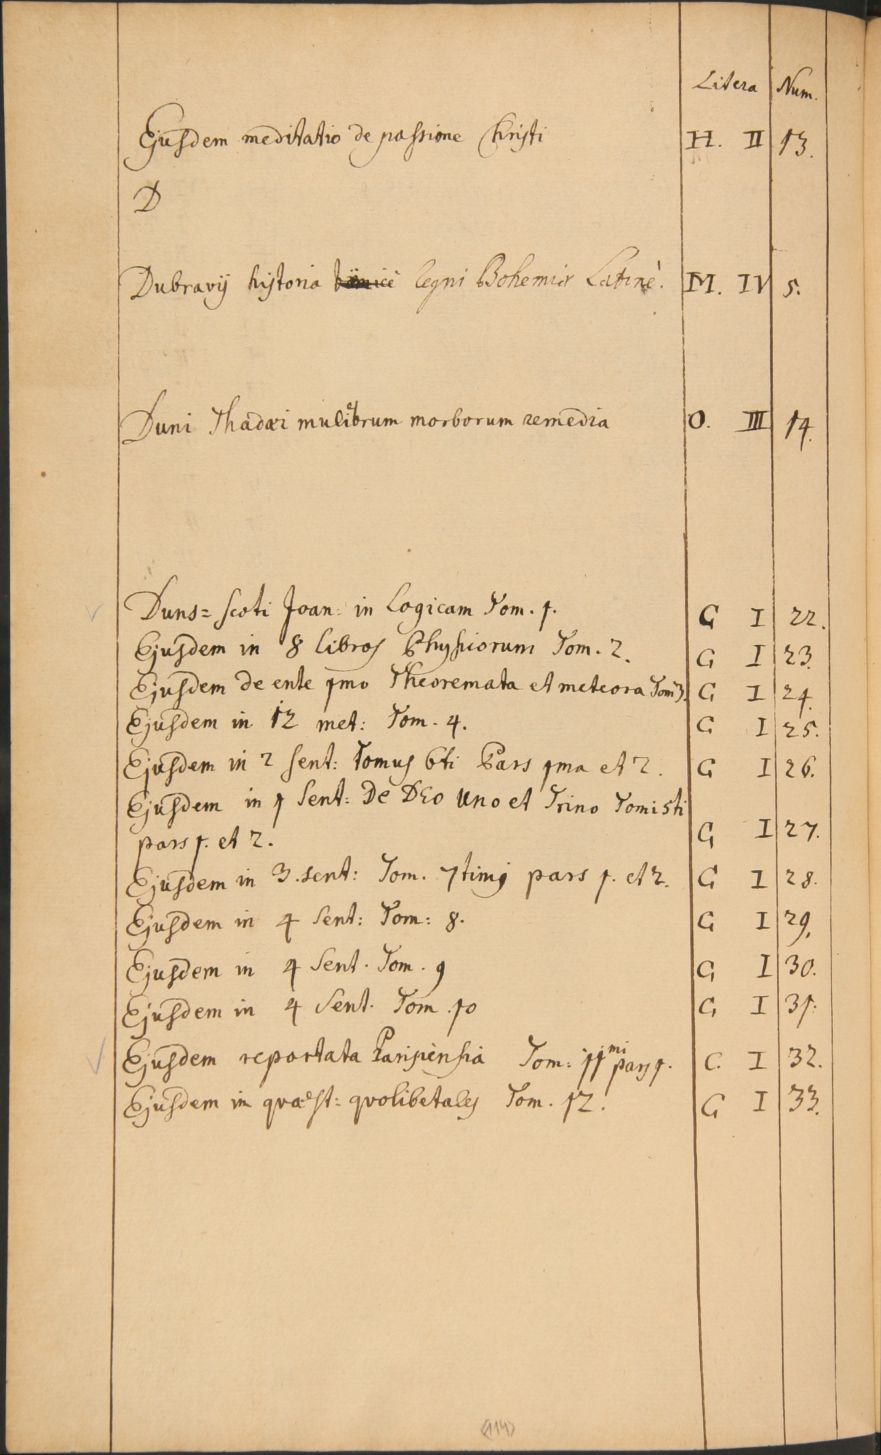 Litera Num.
Ejusdem meditatio de passione Christi H. II 13.
D
Dubravij historia Regni Bohemiæ Latinè. M. IV 5.
Duni Thadæi muliebrum morborum remedia O. III 14.
Duns= Scoti Joan: in Logicam Tom. 1. G I 22.
Ejusdem in 8 libros Physicorum Tom. 2. G I 23.
Ejusdem de ente 1mo Theoremata et meteora Tom 3. G I 24.
Ejusdem in 12 met: Tom. 4. G I 25.
Ejusdem in 2 Sent: Tomus 6ti Pars 1ma et 2. G I 26.
Ejusdem in 1 Sent: De DEo Uno et Trino Tomi 5ti
pars 1. et 2. G I 27.
Ejusdem in 3. sent: Tom. 7timi pars 1. et 2. G I 28.
Ejusdem in 4 Sent: Tom: 8. G I 29.
Ejusdem in 4 Sent. Tom. 9 G I 30.
Ejusdem in 4 Sent. Tom. 10 G I 31.
Ejusdem reportata Parisiensia Tom: 11mi pars 1. G I 32.
Ejusdem in quæst: quolibetales Tom. 12. G I 33.
(114)